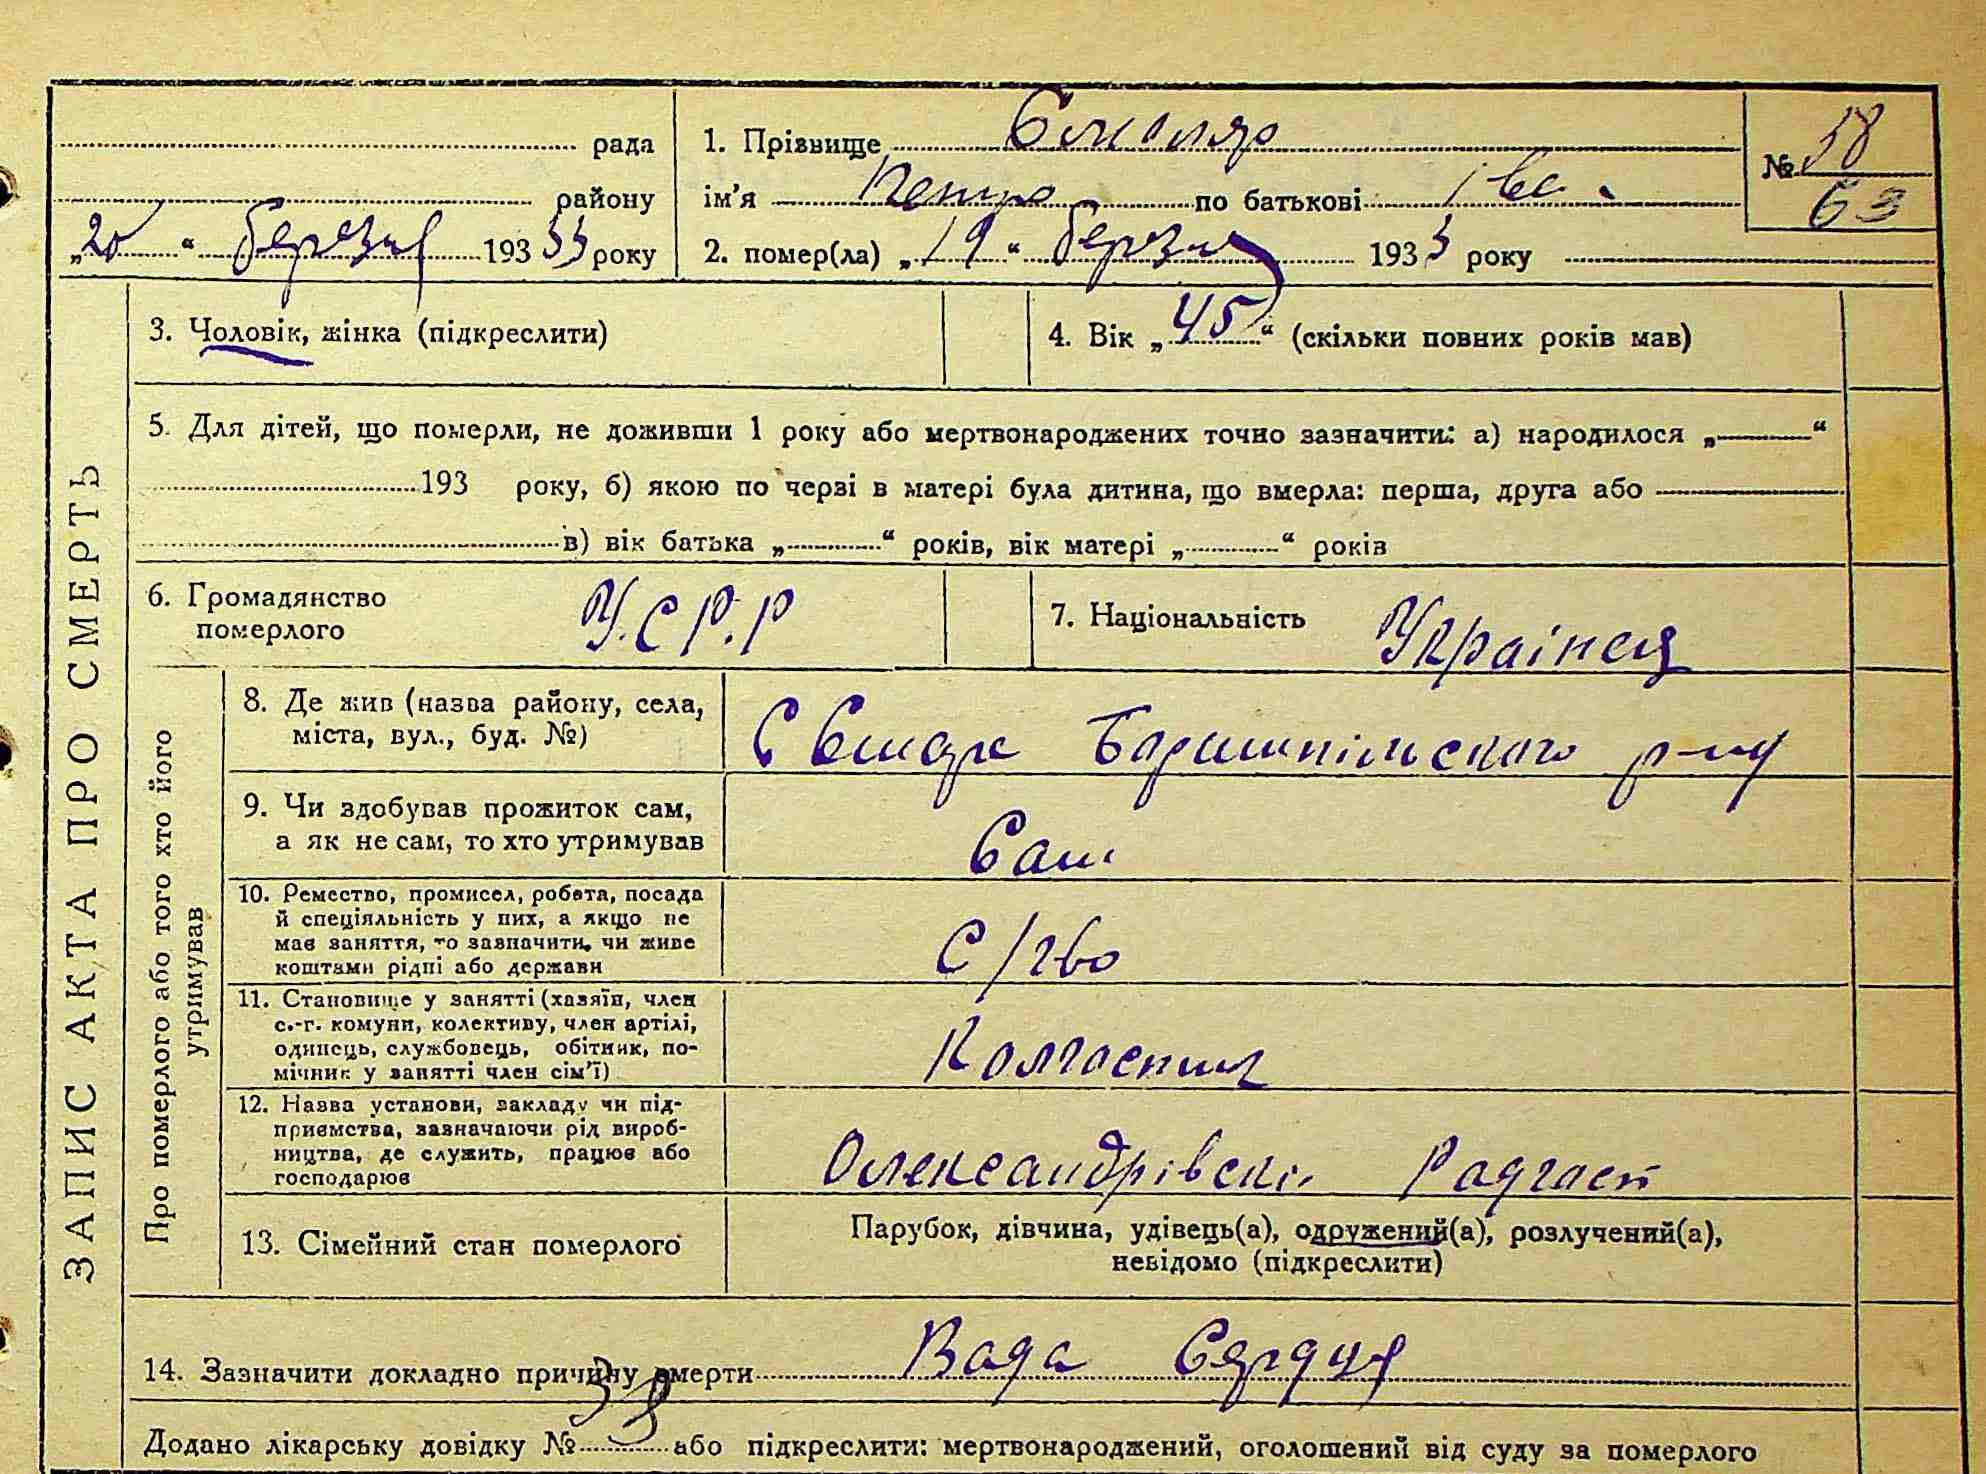 рада
району
„20“ березня 1933 року
1. Прізвище Смоляр
ім'я Петро по батькові Ів.
2. помер(ла) „19“ березня 1933 року
№ 58
63
ЗАПИС АКТА ПРО СМЕРТЬ
3. Чоловік, жінка (підкреслити)
4. Вік „45“ (скільки повних років мав)
5. Для дітей, що померли, не доживши 1 року або мертвонароджених точно зазначити: а) народилося „ “
193 року, б) якою по черзі в матері була дитина, що вмерла: перша, друга або
в) вік батька „ “ років, вік матері „ “ років
6. Громадянство
померлого
У.С.Р.Р
7. Національність Українец
Про померлого або того хто його
утримував
8. Де жив (назва району, села,
міста, вул., буд. №)
С Бориспільского р-ну
9. Чи здобував прожиток сам,
а як не сам, то хто утримував
Сам
10. Ремество, промисел, робота, посада
й спеціяльність у них, а якщо не
має заняття, то зазначити, чи живе
коштами рідні або держави
С/гво
11. Становище у занятті (хазяїн, член
с.-г. комуни, колективу, член артілі,
одинець, службовець, обітник, по-
мічник у занятті член сім'ї)
Колгоспник
12. Назва установи, закладу чи під-
приємства, зазначаючи рід вироб-
ництва, де служить, працює або
господарює
Олександрівскі Радгосп
13. Сімейний стан померлого
Парубок, дівчина, удівець(а), одружений(а), розлучений(а),
невідомо (підкреслити)
14. Зазначити докладно причину смерти Вада Серця
Додано лікарську довідку № 38 або підкреслити: мертвонароджений, оголошений від суду за померлого